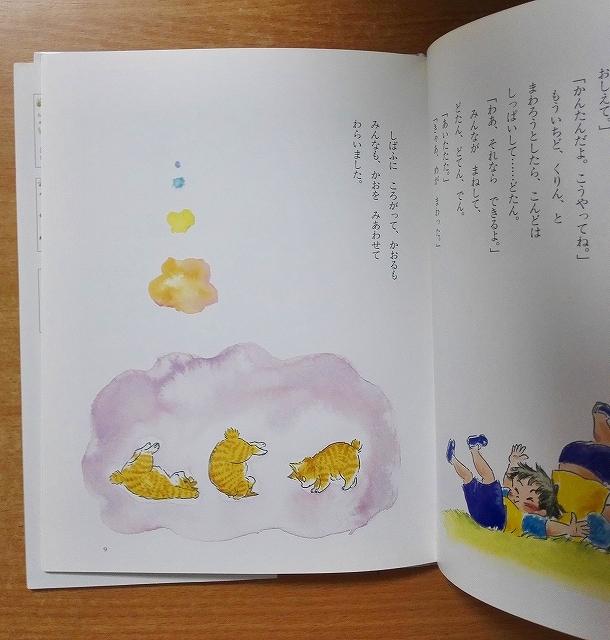 おしえて。」
「かんたんだよ。こうやってね。」
もういちど、くりん、と
まわろうとしたら、こんどは
しっぱいして……どたん。
「わあ、それなら できるよ。」
みんなが まねして、
どたん、どてん、でん。
「あいたたた。」
「きゃあ、めが まわった。」
しばふに ころがって、かおるも
みんなも、かおを みあわせて
わらいました。
9